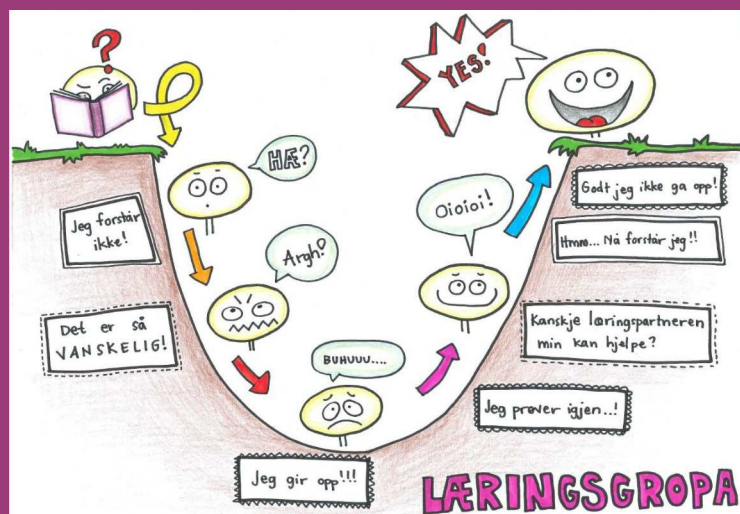 ?
HÆ?
Jeg forstår
ikke!
Argh!
Det er så
VANSKELIG!
BUHUUU....
Jeg gir opp!!!
Jeg prøver igjen..!
Kanskje læringspartneren
min kan hjelpe?
Oioioi!
Hmm... Nå forstår jeg!!
Godt jeg ikke ga opp!
YES!
LÆRINGSGROPA